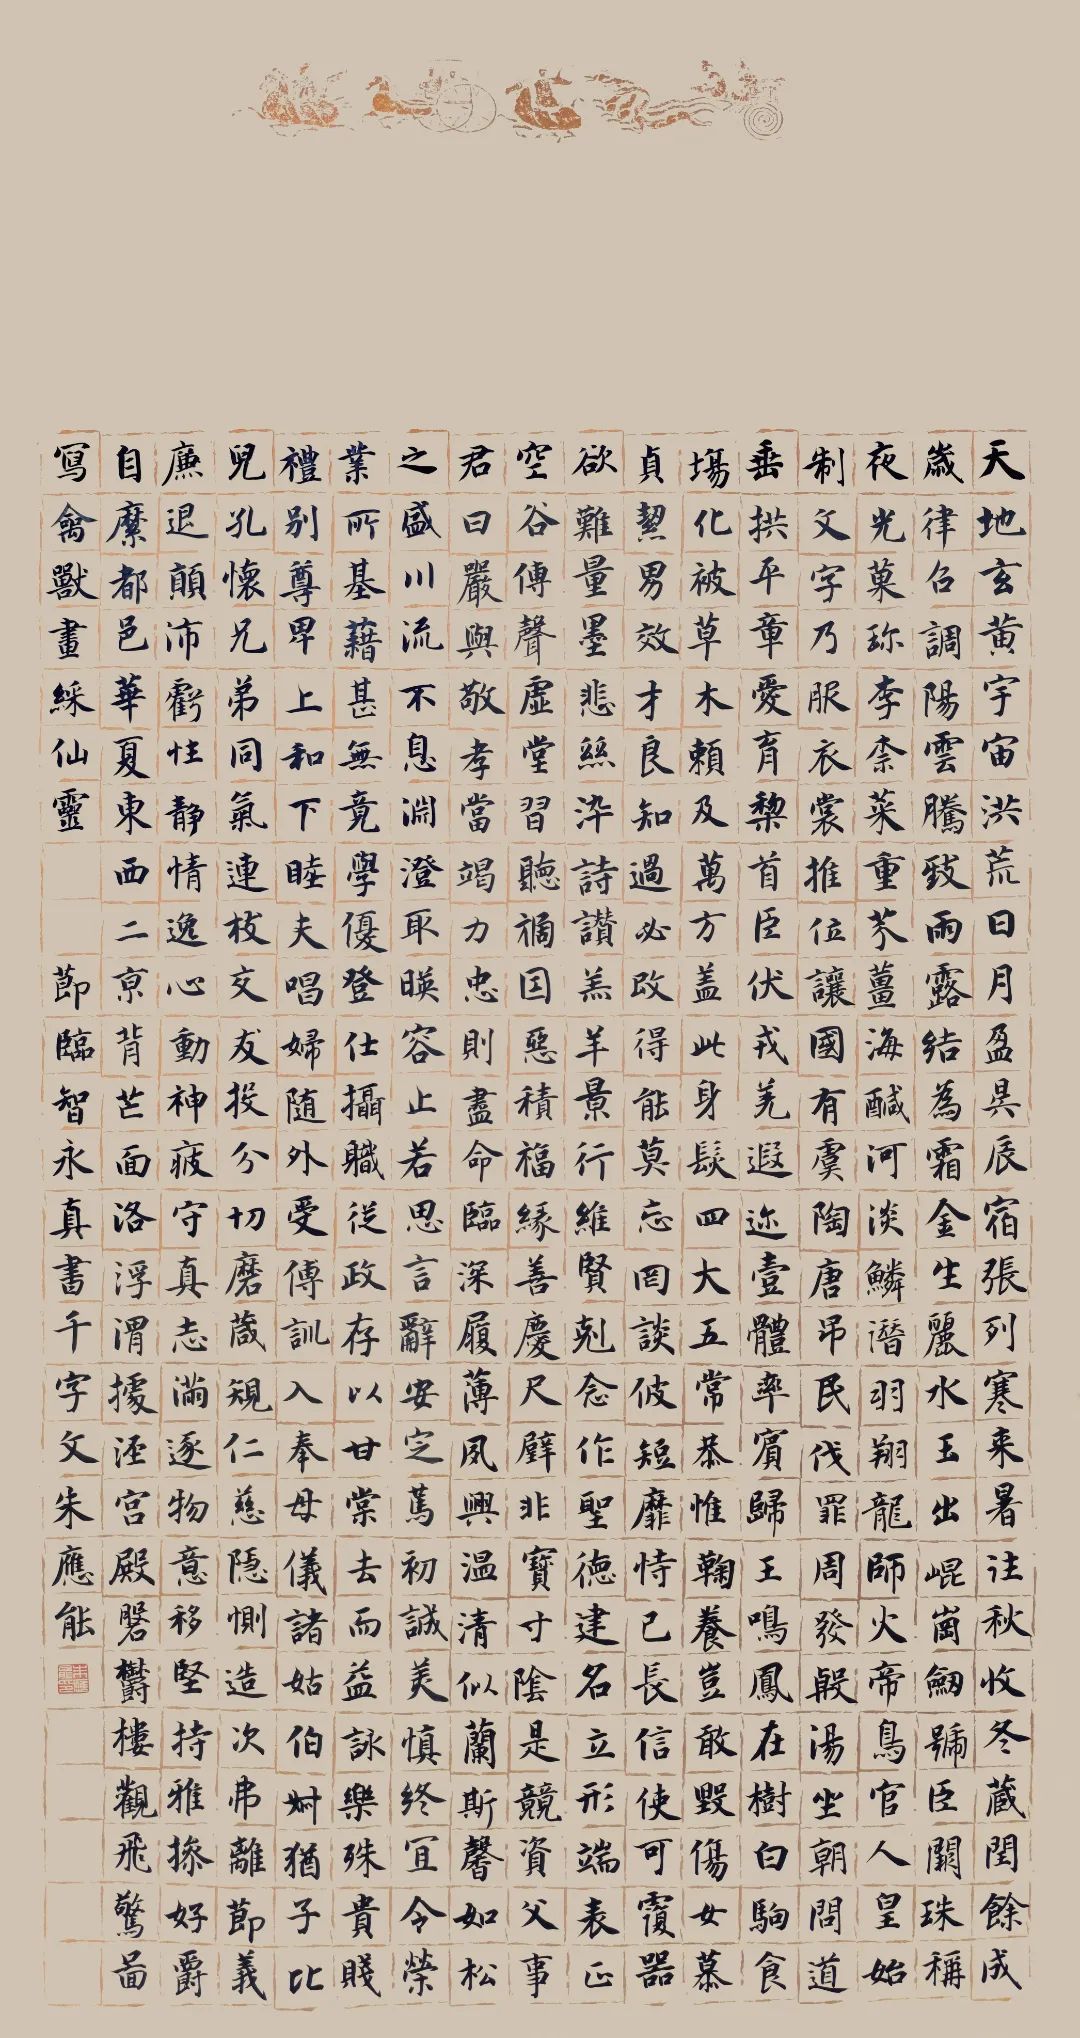 天地玄黄宇宙洪荒日月盈昃辰宿張列寒来暑往秋收冬蔵閏餘成
歳律召調陽雲騰致雨露結為霜金生麗水玉出崐崗劒號臣闕珠稱
夜光菓珎李柰菜重芥薑海醎河淡鱗潛羽翔龍師火帝鳥官人皇始
制文字乃服衣裳推位讓國有虞陶唐吊民伐罪周發殷湯坐朝問道
垂拱平章愛育黎首臣伏戎羌遐迩壹體率賓歸王鳴鳳在樹白駒食
場化被草木頼及萬方盖此身髮四大五常恭惟鞠養豈敢毀傷女慕
貞絜男效才良知過必改得能莫忘罔談彼短靡恃己長信使可覆器
欲難量墨悲絲染詩讃羔羊景行維賢剋念作聖徳建名立形端表正
空谷傳聲虚堂習聽禍因惡積福緣善慶尺璧非寶寸陰是競資父事
君曰嚴與敬孝當竭力忠則盡命臨深履薄夙興温清似蘭斯馨如松
之盛川流不息渊澄取暎容止若思言辭安定篤初誠美慎終宜令榮
業所基藉甚無竟學優登仕攝職従政存以甘棠去而益詠樂殊貴賤
禮別尊卑上和下睦夫唱婦随外受傅訓入奉母儀諸姑伯叔猶子比
兒孔懷兄弟同氣連枝交友投分切磨箴規仁慈隠惻造次弗離節義
廉退顛沛虧性静情逸心動神疲守真志滿逐物意移堅持雅操好爵
自縻都邑華夏東西二京背芒面洛浮渭據涇宮殿磐欝樓觀飛驚啚
寫禽獸畫綵仙靈 節臨智永真書千字文朱應能